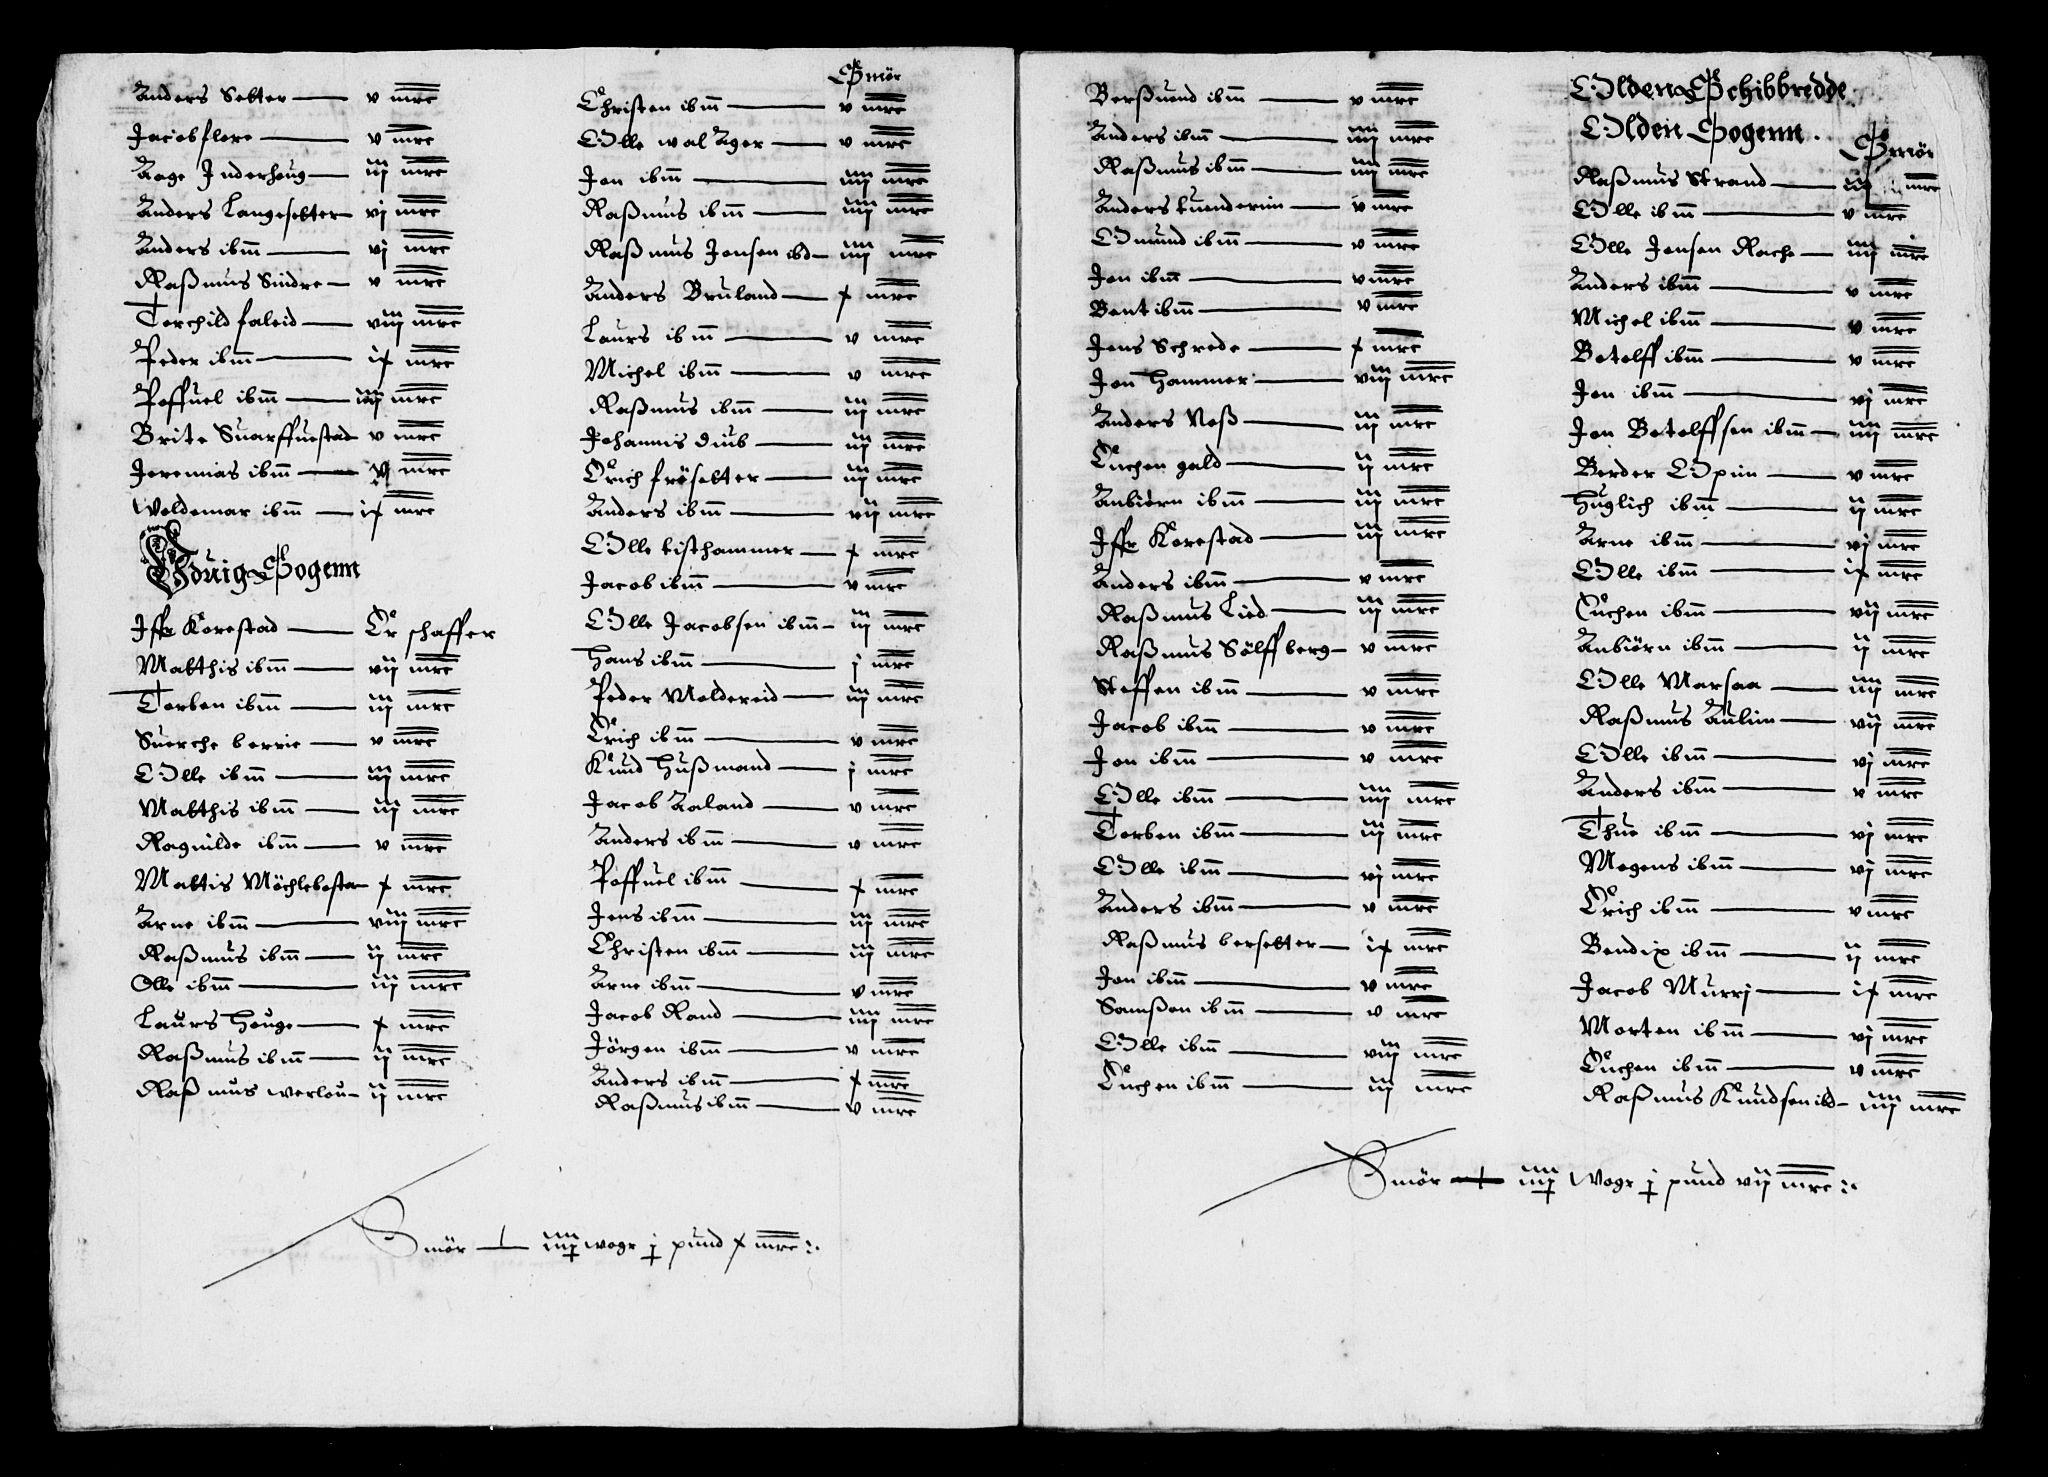 Anders Setter — v mrc
Jacob flore — v mrc
Aage Inderhoug — iij mrc
Anders Langesetter vj mrc
Anders ibm — vj mrc
Raßmus Sindre — v mrc
Torchild faleid — viij mrc
Peder ibm — ix mrc
Poffuel ibm — iiij mrc
Brite Suarffuestad v mrc
Jeremias ibm — mrc
Woldemar ibm — ix mrc
Eduig Sogenn
Iffr Korestad — Er schaffer
Matthis ibm — vij mrc
Torben ibm — iij mrc
Suerche berrie — v mrc
Olle ibm — iij mrc
Matthis ibm — iij mrc
Ragnilde ibm — v mrc
Mattis Möchlebosta — x mrc
Arne ibm — viij mrc
Raßmus ibm — ij mrc
Olle ibm — iij mrc
Laurs Houge — x mrc
Raßmus ibm — ij mrc
Raßmus werlou — ij mrc
Smör
Christen ibm — v mrc
Olle wal Ager — v mrc
Jon ibm — iiij mrc
Raßmus ibm — iiij mrc
Raßmus Jensen ibd — iiij mrc
Anders Bruland — x mrc
Laurs ibm — v mrc
Michel ibm — v mrc
Raßmus ibm — iij mrc
Johannis diub — iij mrc
Erich frösetter — iij mrc
Anders ibm — vij mrc
Olle tisthammer — x mrc
Jacob ibm — v mrc
Olle Jacobsen ibm — iij mrc
Hans ibm — j mrc
Peder Moldereid — iij mrc
Erich ibm — v mrc
Knud Hußmand — j mrc
Jacob Aaland — v mrc
Anders ibm — v mrc
Poffuel ibm — x mrc
Jens ibm — iij mrc
Christen ibm — iij mrc
Arne ibm — v mrc
Jacob Rand — iiij mrc
Jörgen ibm — v mrc
Anders ibm — x mrc
Raßmus ibm — v mrc
Smör — iiij wogr j pund x mrc
Berßuend ibm — v mrc
Anders ibm — iiij mrc
Raßmus ibm — iiij mrc
Anders tuenderim — v mrc
Omund ibm — v mrc
Jon ibm — v mrc
Bent ibm — v mrc
Jens Schrede — x mrc
Jon Hammer — viij mrc
Anders Noß — iij mrc
Euchen gald — ij mrc
Anbiörn ibm — iij mrc
Iffr Korestad — iij mrc
Anders ibm — v mrc
Raßmus Lied — iij mrc
Raßmus Sölffberg — v mrc
Steffen ibm — v mrc
Jacob ibm — v mrc
Jon ibm — v mrc
Olle ibm — iiij mrc
Torben ibm — iij mrc
Olle ibm — vj mrc
Anders ibm — v mrc
Raßmus bersetter — ix mrc
Jon ibm — v mrc
Samßon ibm — v mrc
Olle ibm — viij mrc
Euchen ibm — iij mrc
Olden Schibbredde
Olden Sogenn.
Smör
Raßmus Strand — mrc
Olle ibm — v mrc
Olle Jensen Rache — iiij mrc
Anders ibm — v mrc
Michel ibm — v mrc
Botolff ibm — v mrc
Jon ibm — vj mrc
Jon Botolffsen ibm — iiij mrc
Berder Opim — v mrc
Huglich ibm — ij mrc
Arne ibm — vj mrc
Olle ibm — ix mrc
Euchen ibm — vij mrc
Anbiörn ibm — ij mrc
Olle Marsaa — iiij mrc
Raßmus Aulim — vij mrc
Olle ibm — vj mrc
Anders ibm — v mrc
Thue ibm — vj mrc
Mogens ibm — vj mrc
Erich ibm — v mrc
Bendix ibm — ij mrc
Jacob Murrj — ix mrc
Morten ibm — vj mrc
Euchen ibm — v mrc
Raßmus Knudsen ibd — iiij mrc
Smör — iiij wogr j pund vij mrc